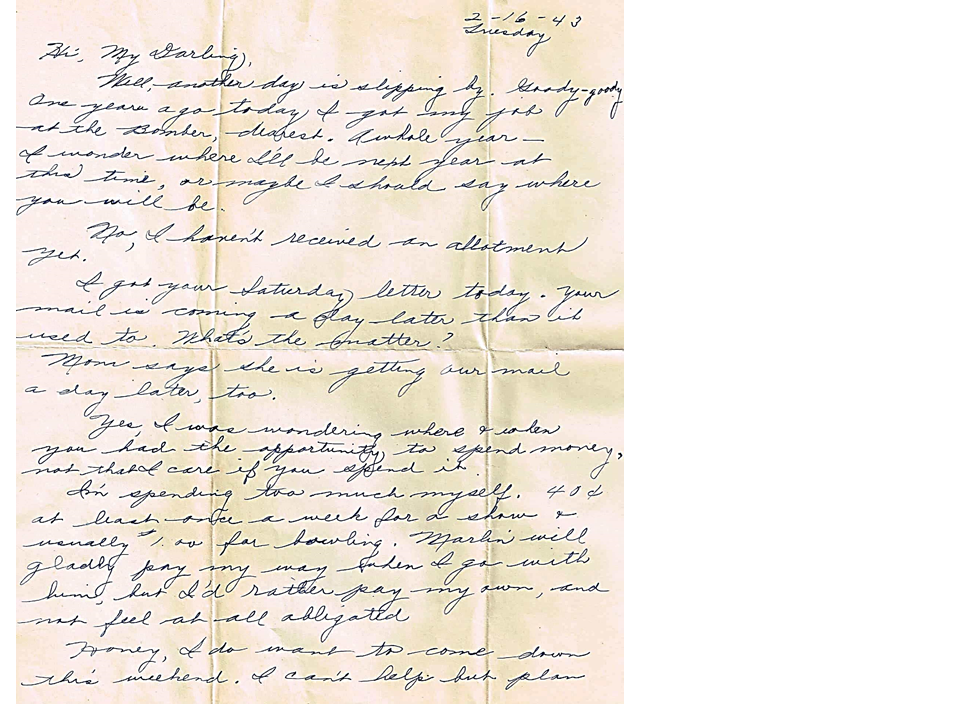 2-16-43
Tuesday
Hi, My Darling,
Well, another day is slipping by. Goody-goody
One year ago today, I got my job
at the Bomber, dearest. A whole year –
I wonder where I'll be next year at
this time, or maybe I should say where
you will be.
No, I haven't received an allotment
yet.
I got your Saturday letter today. Your
mail is coming a day later than it
used to. What's the matter?
Mom says she is getting our mail
a day later, too.
Yes, I was wondering where & when
you had the opportunity to spend money,
not that I care if you spend it.
I'm spending too much myself. 40¢
at least once a week for a show &
usually $1.00 for bowling. Marlin will
gladly pay my way when I go with
him, but I'd rather pay my own, and
not feel at all obligated
Honey, I do want to come down
this weekend. I can't help but plan